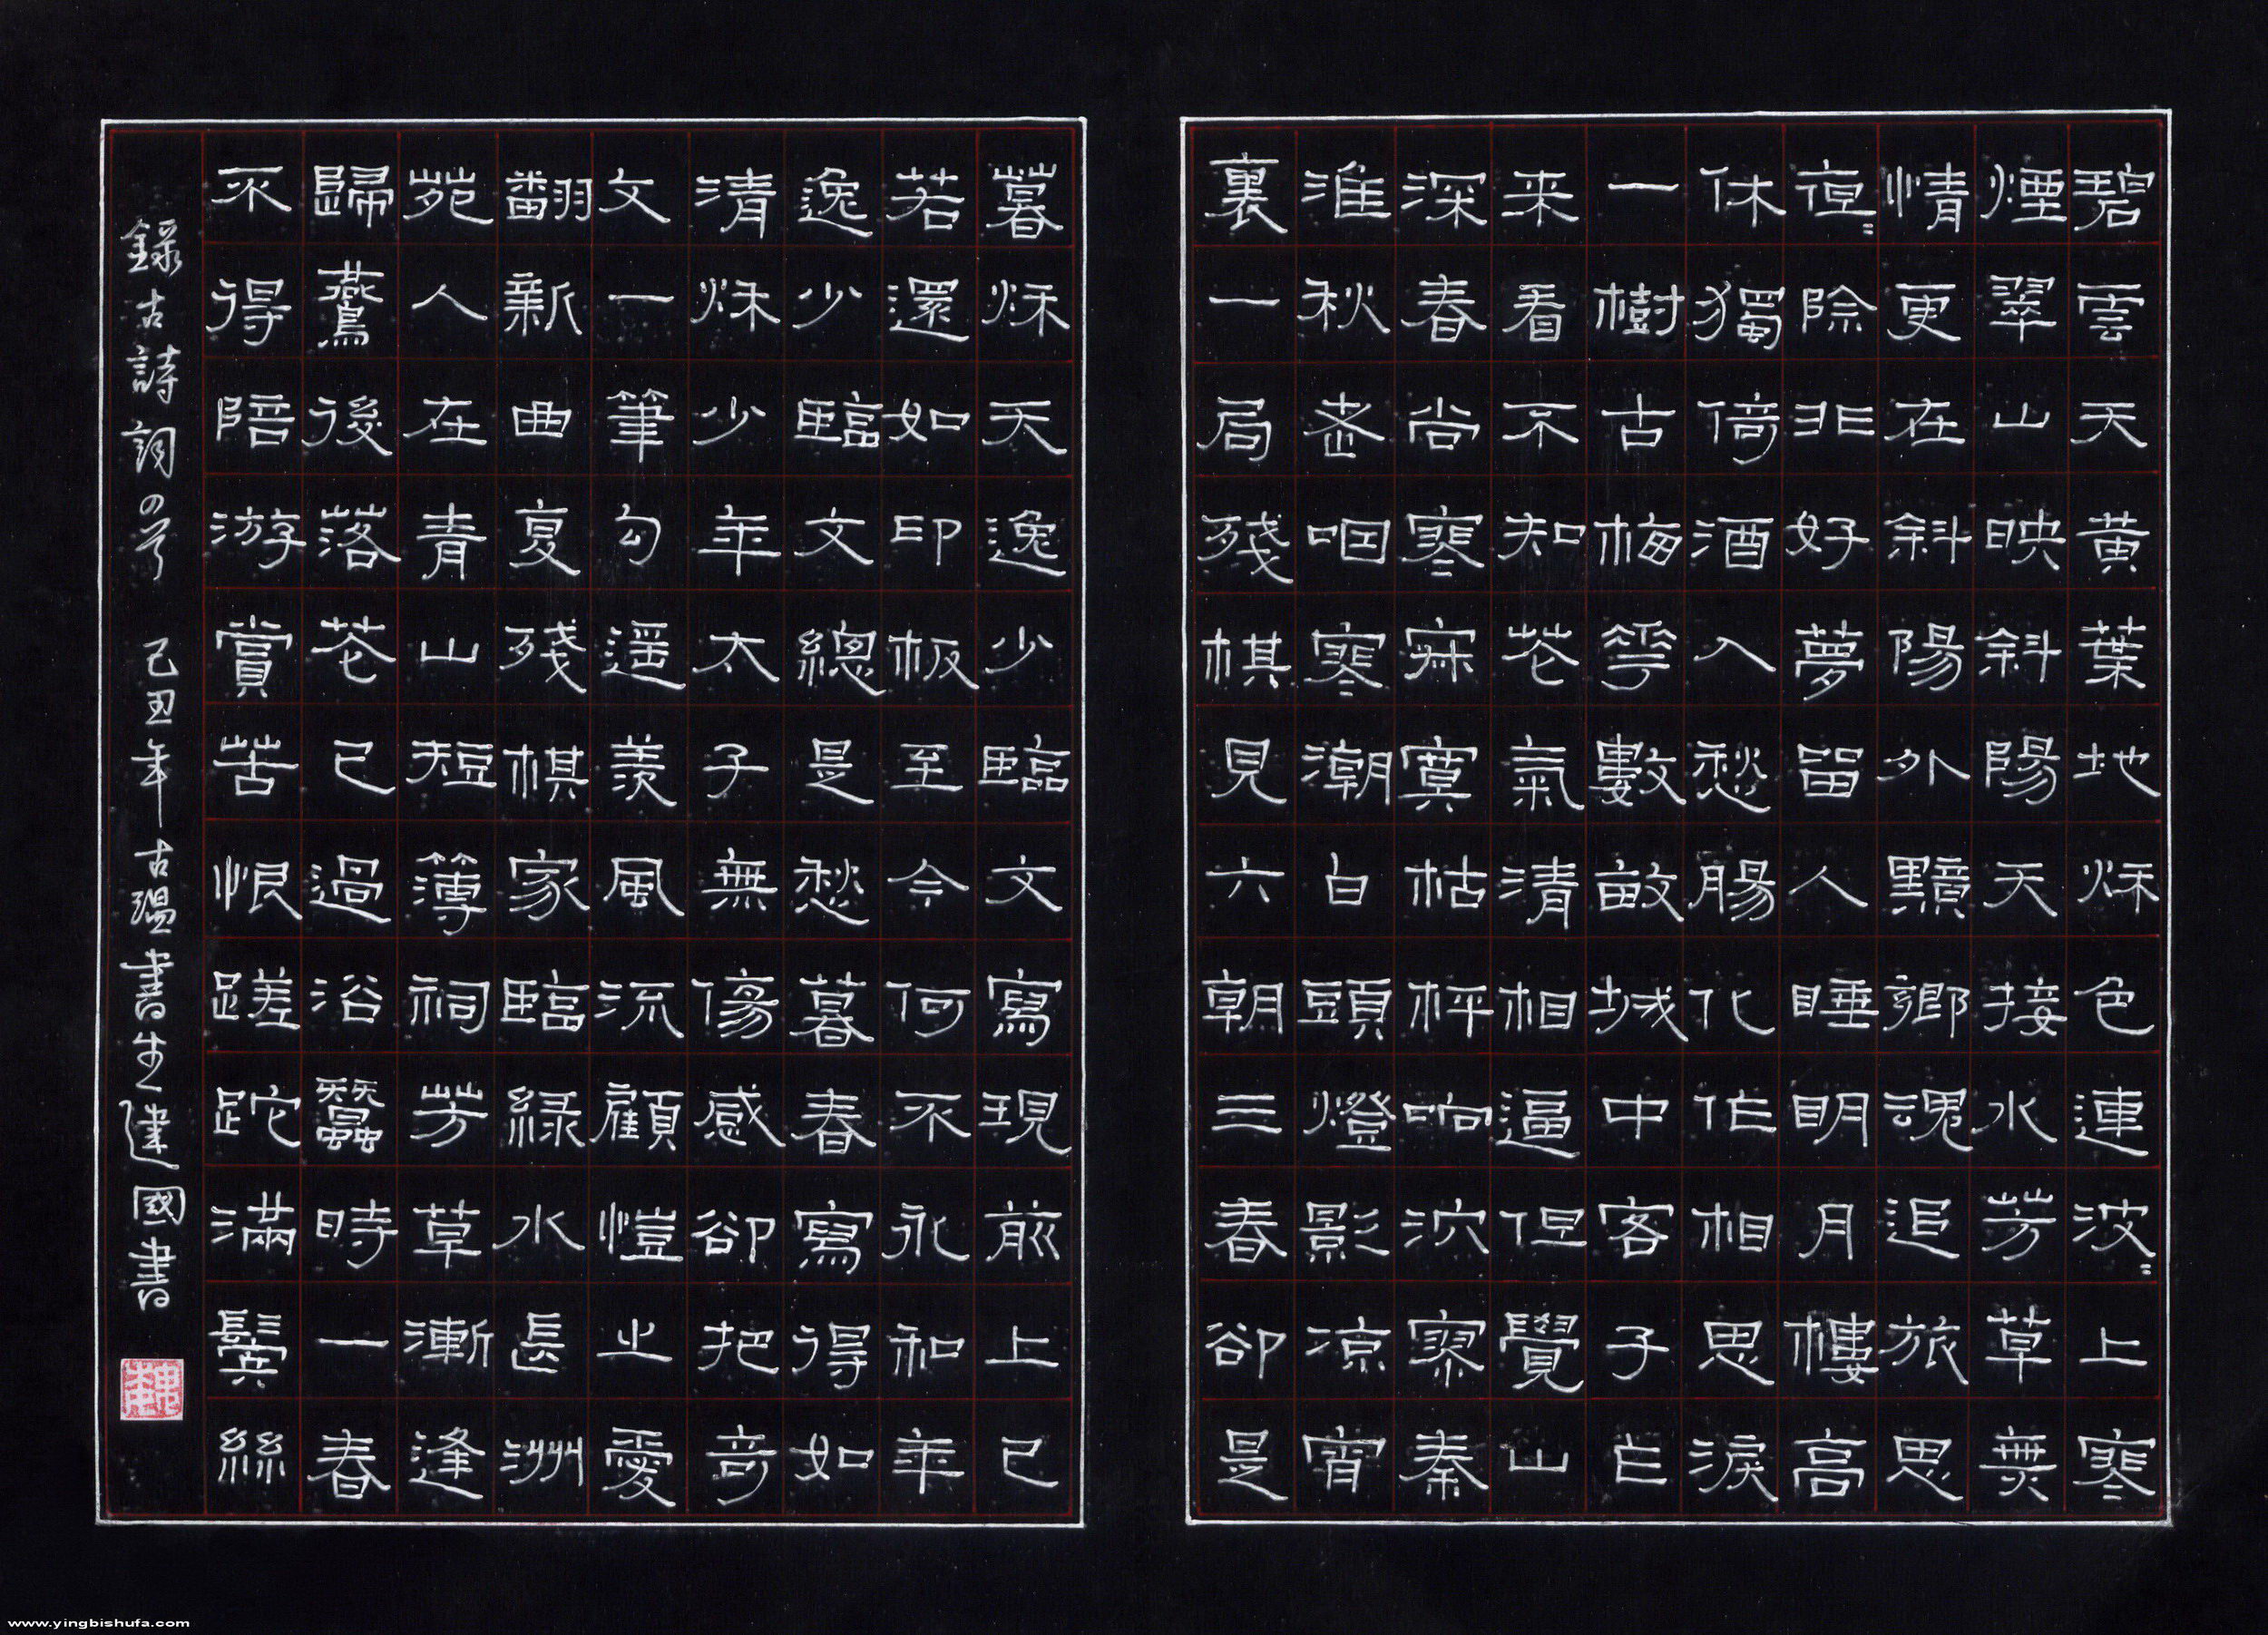 碧雲天黃葉地秌色連波〻上寒
煙翠山映斜陽天接水芳草無
情更在斜陽外黯鄉魂追旅思
夜〻除非好夢留人睡明月樓高
休獨倚酒入愁腸化作相思淚
一樹古梅華數畝城中客子乍
来看不知花氣清相逼但覺山
深春尚寒寂寞枯枰响泬寥秦
淮秋老咽寒潮白頭燈影涼宵
裏一局殘棋見六朝三春卻是
暮秌天逸少臨文寫現前上已
若還如印板至今何不永和年
逸少臨文總是愁暮春寫得如
清秌少年太子無傷感卻把奇
文一筆勾遥羨風流顧愷之愛
翻新曲夏殘棋家臨綠水長洲
苑人在青山短簿祠芳草漸逢
歸鷰後落花已過浴蠶時一春
不得陪游賞苦恨蹉跎滿鬢絲
錄古詩詞四首 己丑年古溫書生建國書
www.yingbishufa.com